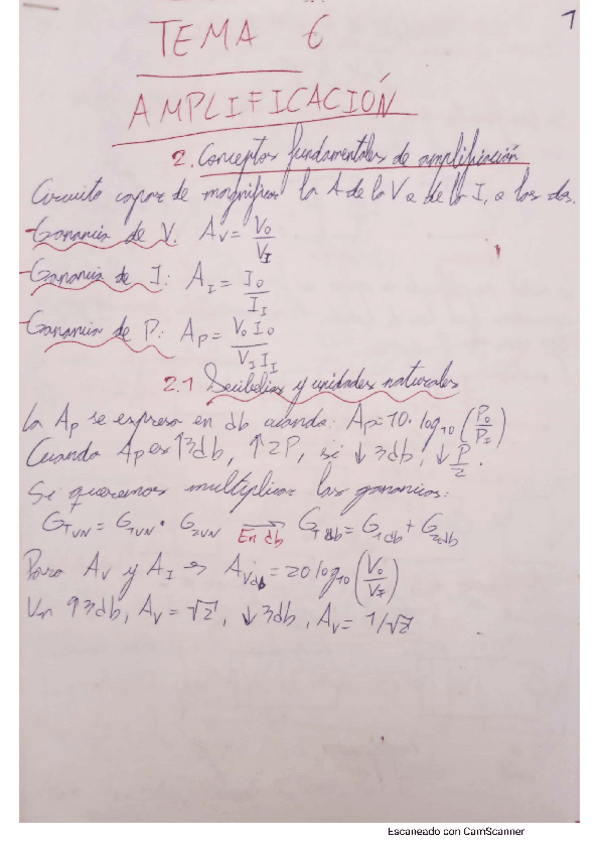 1
TEMA 6
AMPLIFICACIÓN
2. Conceptos fundamentales de amplificación
Circuito capaz de magnificar la A de la V o de la I, o las dos.
-Ganancia de V. Av = Vo/VI
-Ganancia de I: AI = Io/II
-Ganancia de P: Ap = Vo Io/VI II
2.1 Decibelios y unidades naturales
La Ap se expresa en db cuando: Ap=10·log10(Po/PI)
Cuando Ap es ↑3db, ↑2P, si ↓3db, ↓P/2.
Si queremos multiplicar las ganancias:
GTUN = G1UN · G2UN En db → GTdb = G1db + G2db
Para Av y AI → Avdb = 20 log10(Vo/VI)
Un ↑3db, Av = √2, ↓3db, Av = 1/√2
Escaneado con CamScanner